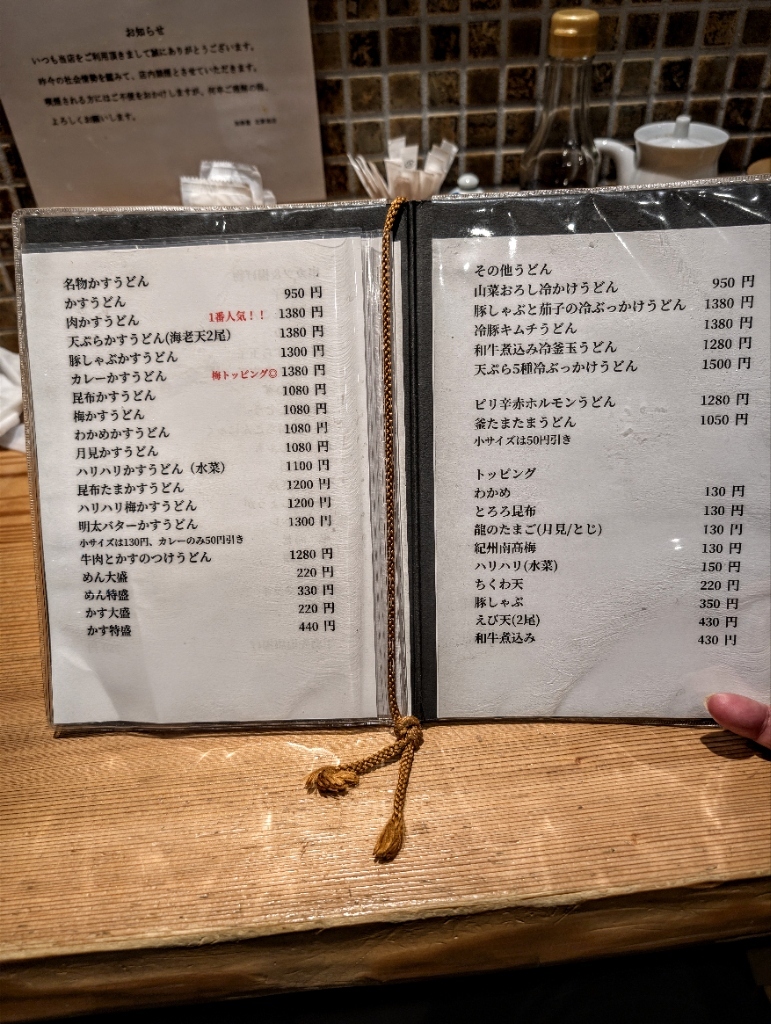 お知らせ
いつも当店をご利用頂きまして誠にありがとうございます。
昨今の社会情勢を鑑みて、店内禁煙とさせていただきます。
喫煙される方にはご不便をおかけしますが、何卒ご理解の程、
よろしくお願いします。
名物かすうどん
かすうどん 950 円
肉かすうどん 1番人気！！ 1380 円
天ぷらかすうどん(海老天2尾) 1380 円
豚しゃぶかすうどん 1300 円
カレーかすうどん 梅トッピング◎ 1380 円
昆布かすうどん 1080 円
梅かすうどん 1080 円
わかめかすうどん 1080 円
月見かすうどん 1080 円
ハリハリかすうどん（水菜） 1100 円
昆布たまかすうどん 1200 円
ハリハリ梅かすうどん 1200 円
明太バターかすうどん 1300 円
小サイズは130円、カレーのみ50円引き
牛肉とかすのつけうどん 1280 円
めん大盛 220 円
めん特盛 330 円
かす大盛 220 円
かす特盛 440 円
その他うどん
山菜おろし冷かけうどん 950 円
豚しゃぶと茄子の冷ぶっかけうどん 1380 円
冷豚キムチうどん 1380 円
和牛煮込み冷釜玉うどん 1280 円
天ぷら5種冷ぶっかけうどん 1500 円
ピリ辛赤ホルモンうどん 1280 円
釜たまたまうどん 1050 円
小サイズは50円引き
トッピング
わかめ 130 円
とろろ昆布 130 円
龍のたまご(月見/とじ) 130 円
紀州南高梅 130 円
ハリハリ(水菜) 150 円
ちくわ天 220 円
豚しゃぶ 350 円
えび天(2尾) 430 円
和牛煮込み 430 円